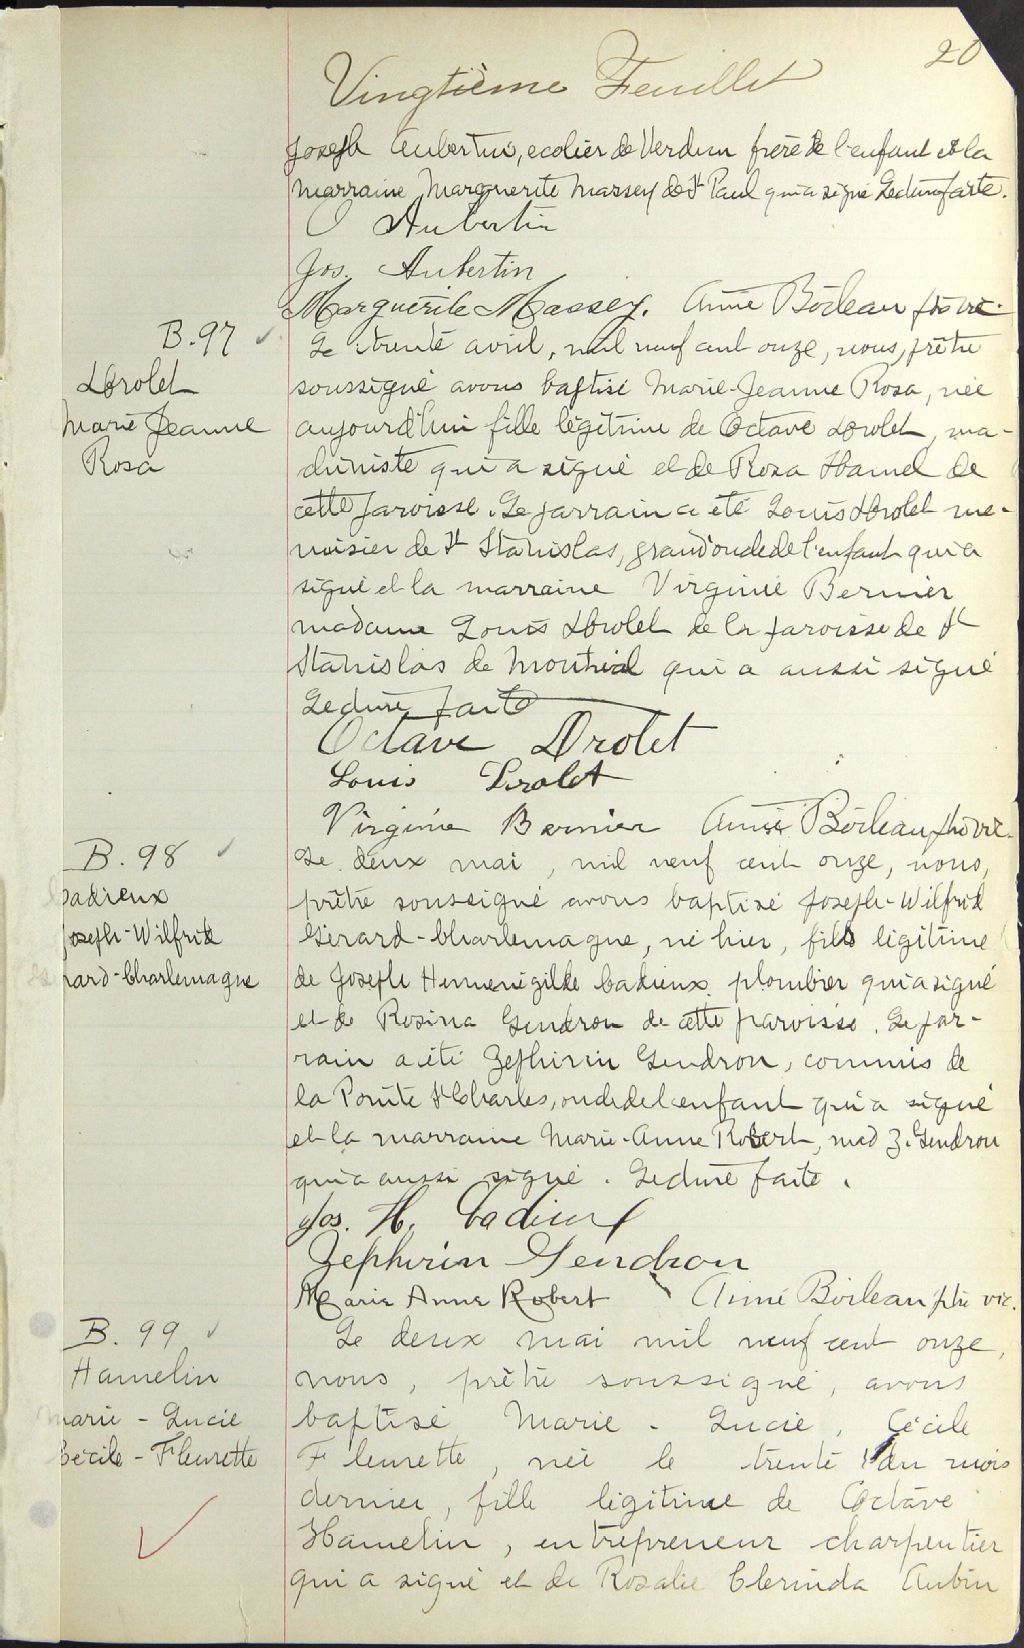 20
Vingtième Feuillet
Joseph Aubertin, ecolier de Verdun frère de l'enfant et la
marraine Marguerite Massey de St Paul qui a signé Lecture faite.
O Aubertin
Jos. Aubertin
Marguerite Massey. Aimé Boileau ptre vic.
B.97
Drolet
Marie Jeanne
Rosa
Le trente avril, mil neuf cent onze, nous, prêtre
soussigné avons baptisé Marie-Jeanne Rosa, née
aujourd'hui fille légitime de Octave Drolet, ma-
chiniste qui a signé et de Rosa Hamel de
cette paroisse. Le parrain a été Louis Drolet me-
nuisier de St Stanislas, grand'oncle de l'enfant qui a
signé et la marraine Virginie Bernier
madame Louis Drolet de la paroisse de St
Stanislas de Montréal qui a aussi signé
Lecture faite
Octave Drolet
Louis Drolet
Virginie Bernier Aimé Boileau ptre vic.
B. 98
Cadieux
Joseph-Wilfrid
Gérard-Charlemagne
Le deux mai, mil neuf cent onze, nous,
prêtre soussigné avons baptisé Joseph-Wilfrid
Gérard-Charlemagne, né hier, fils légitime
de Joseph Hermenégilde Cadieux plombier qui a signé
et de Rosina Gendron de cette paroisse. Le par-
rain a été Zéphirin Gendron, commis de
la Pointe St Charles, oncle de l'enfant qui a signé
et la marraine Marie-Anne Robert, mad Z. Gendron
qui a aussi signé. Lecture faite.
Jos. H. Cadieux
Zephirin Gendron
Marie Anne Robert Aimé Boileau ptre vic.
B. 99
Hamelin
Marie - Lucie
Cécile - Fleurette
Le deux mai mil neuf cent onze,
nous, prêtre soussigné, avons
baptisé Marie - Lucie, Cécile
Fleurette, née le trente du mois
dernier, fille légitime de Octave
Hamelin, entrepreneur charpentier
qui a signé et de Rosalie Clerinda Aubin